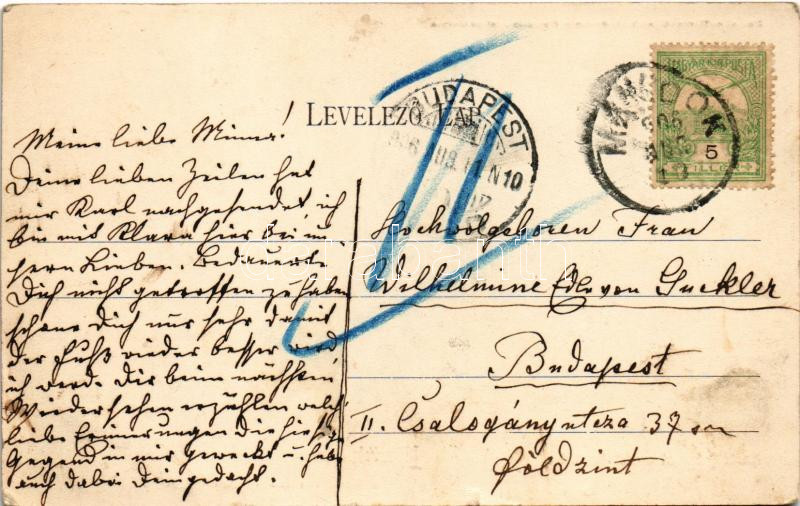 LEVELEZŐ-LAP
BUDAPEST
MÁNDOK
MAGYAR KIR. POSTA
5
Meine liebe Minna!
Deine lieben Zeilen hat
mir Karl nachgesendet, ich
bin mit Klara hier bei un
sern Lieben. Bedauerte
Dich nicht getroffen zu haben
schone Dich nur sehr damit
der Fuß wieder besser wird,
ich werd. Dir beim nächsten
Wiedersehen erzählen welch
liebe Erinnerungen die hiesige
Gegend in mir geweckt u. habe
auch dabei Dein gedacht.
Hochwolgeboren Frau
Wilhelmine Edle von Guckler
Budapest
II. Csalogány utcza 37 sz
földszint